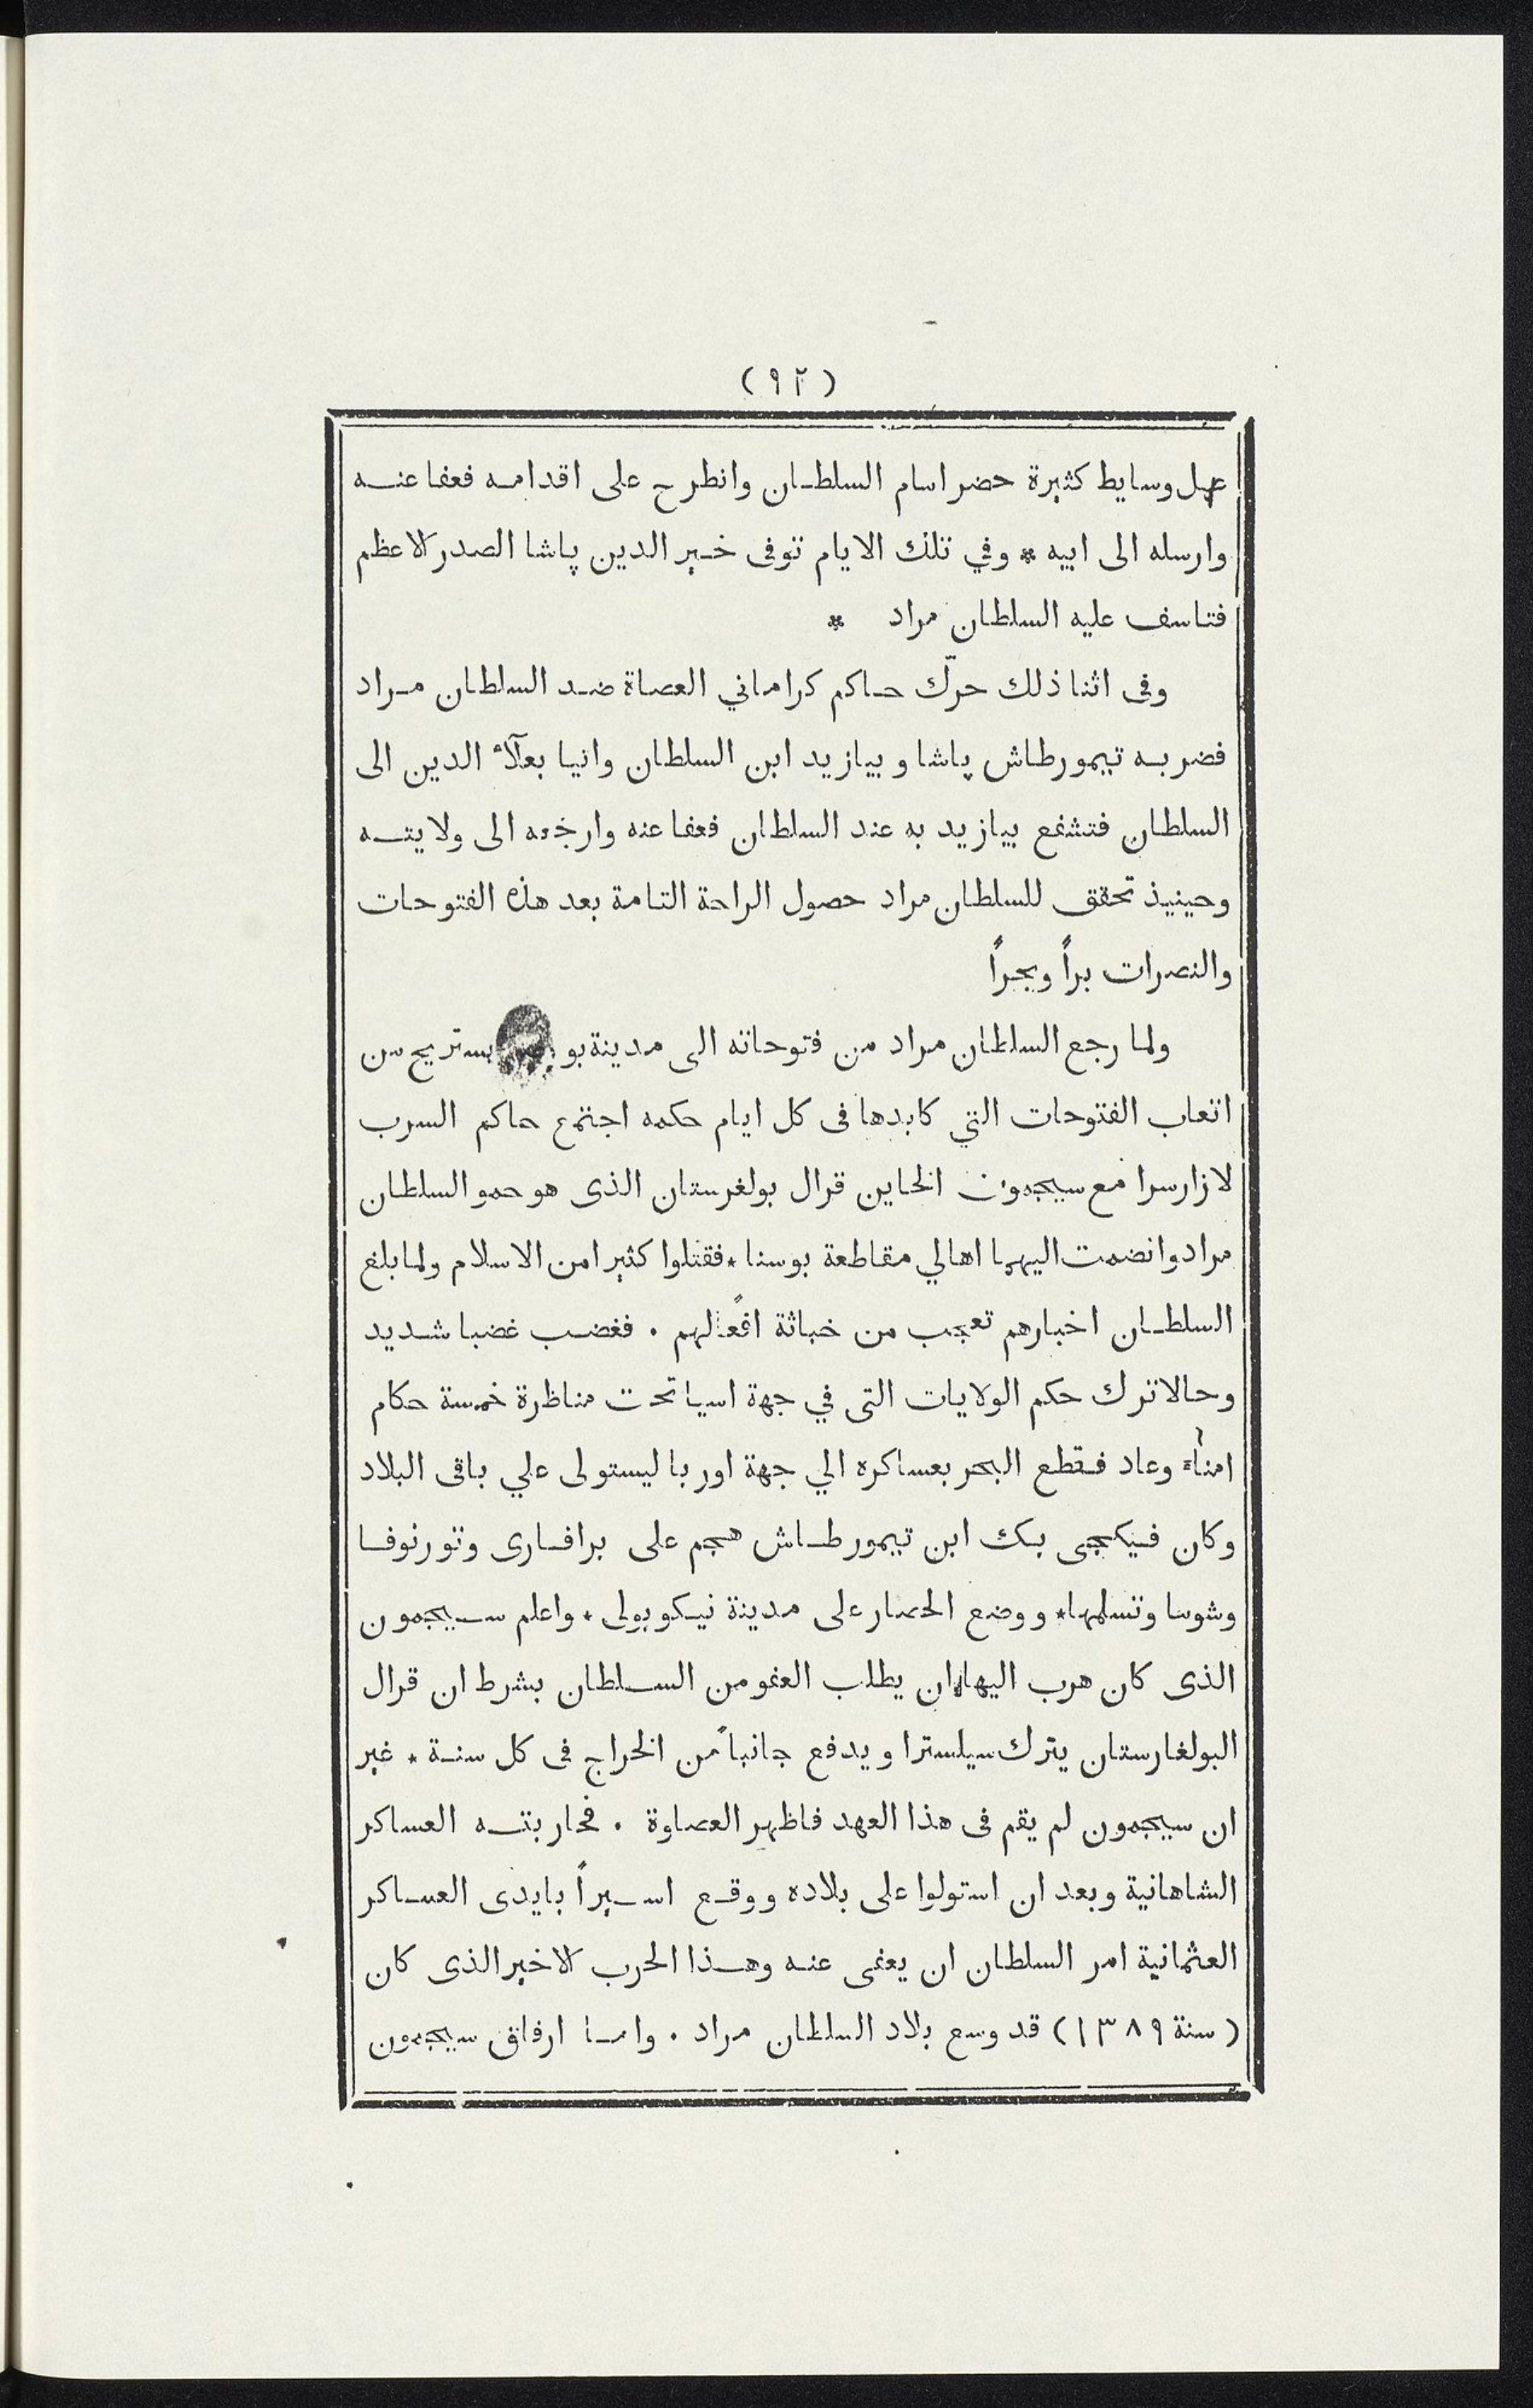 (٩٢)
عمل وسايط كثيرة حضر امام السلطان وانطرح على اقدامه فعفا عنه
وارسله الى ابيه * وفي تلك الايام توفى خير الدين پاشا الصدر الاعظم
فتاسف عليه السلطان مراد *
وفى اثنا ذلك حرّك حاكم كراماني العصاة ضد السلطان مراد
فضربه تيمورطاش پاشا وبيازيد ابن السلطان واتيا بعلآء الدين الى
السلطان فتشفع بيازيد به عند السلطان فعفا عنه وارجعه الى ولايته
وحينيذ تحقق للسلطان مراد حصول الراحة التامة بعد هذه الفتوحات
والنصرات براً وبحراً
ولما رجع السلطان مراد من فتوحاته الى مدينة يستريح من
اتعاب الفتوحات التي كابدها فى كل ايام حكمه اجتمع حاكم السرب
لازارسرا مع سيجمون الخاين قرال بولغرستان الذى هو حمو السلطان
مراد وانضمت اليهما اهالي مقاطعة بوسنا * فقتلوا كثيرا من الاسلام ولما بلغ
السلطان اخبارهم تعجب من خباثة افعالهم . فغضب غضبا شديد
وحالا ترك حكم الولايات التى في جهة اسيا تحت مناظرة خمسة حكام
امناء وعاد فقطع البحر بعساكره الي جهة اوربا ليستولى علي باقى البلاد
وكان فيكجى بك ابن تيمورطاش هجم على برافارى وتورنوفا
وشوسا وتسلمها * ووضع الحصار على مدينة نيكوبولى * واعلم سيجمون
الذى كان هرب اليها ان يطلب العفو من السلطان بشرط ان قرال
البولغارستان يترك سيلسترا ويدفع جانباً من الخراج فى كل سنة * غير
ان سيجمون لم يقم فى هذا العهد فاظهر العصاوة . فحاربته العساكر
الشاهانية وبعد ان استولوا على بلاده ووقع اسيراً بايدى العساكر
العثمانية امر السلطان ان يعفى عنه وهذا الحرب الاخير الذى كان
(سنة ١٣٨٩) قد وسع بلاد السلطان مراد . واما ارفاق سيجمون